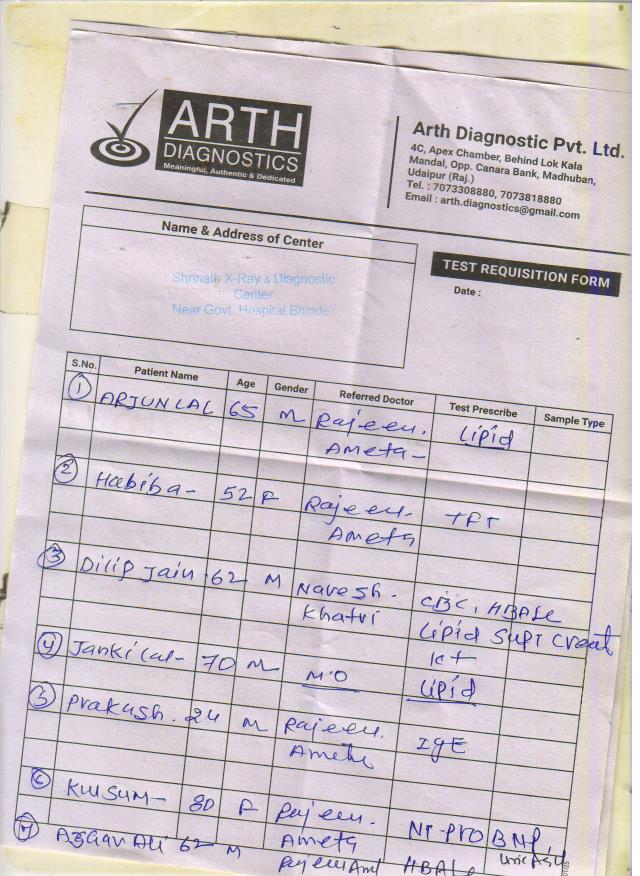 ARTH
DIAGNOSTICS
Meaningful, Authentic & Dedicated
Arth Diagnostic Pvt. Ltd.
4C, Apex Chamber, Behind Lok Kala
Mandal, Opp. Canara Bank, Madhuban,
Udaipur (Raj.)
Tel. : 7073308880, 7073818880
Email : arth.diagnostics@gmail.com
Name & Address of Center
Shrinath X-Ray & Diagnostic
Center
Near Govt. Hospital,Bhinder
TEST REQUISITION FORM
Date :
S.No. Patient Name Age Gender Referred Doctor Test Prescribe Sample Type
1 ARJUN LAL 65 M Rajeev. Lipid
Ameta-
2 Habiba- 52 F Rajeev. TFT
Ameta
3 Dilip Jain 62 M Navesh. CBC, HBA1c
Khatri Lipid Creat
4 Janki Lal- 70 M M'O Lipid
5 Prakash. 24 M Rajeev. IgE
Ameta
6 KULSUM- 80 F Rajeev. NT-PRO BNP,
Ameta
7 Asgar Ali 62 M Rajeev Amt HBA1c